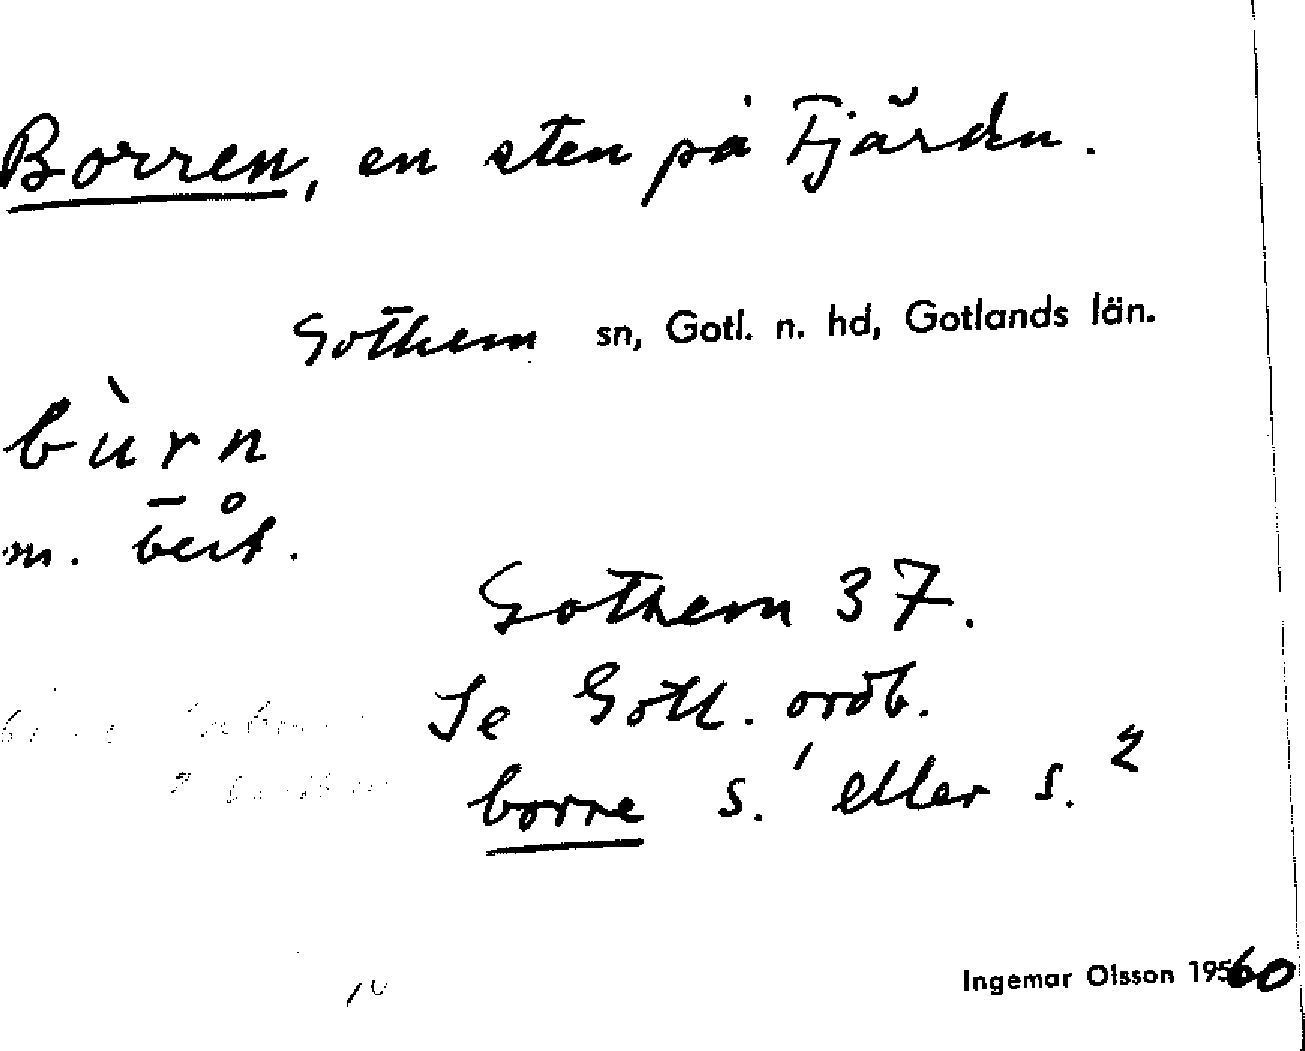 Borren, en sten på Fjärden.
Gothem sn, Gotl. n. hd, Gotlands län.
bùrn
m. best.
Gothem 37.
Se Gotl. ordb.
borre s.¹ eller s.²
Ingemar Olsson 1960